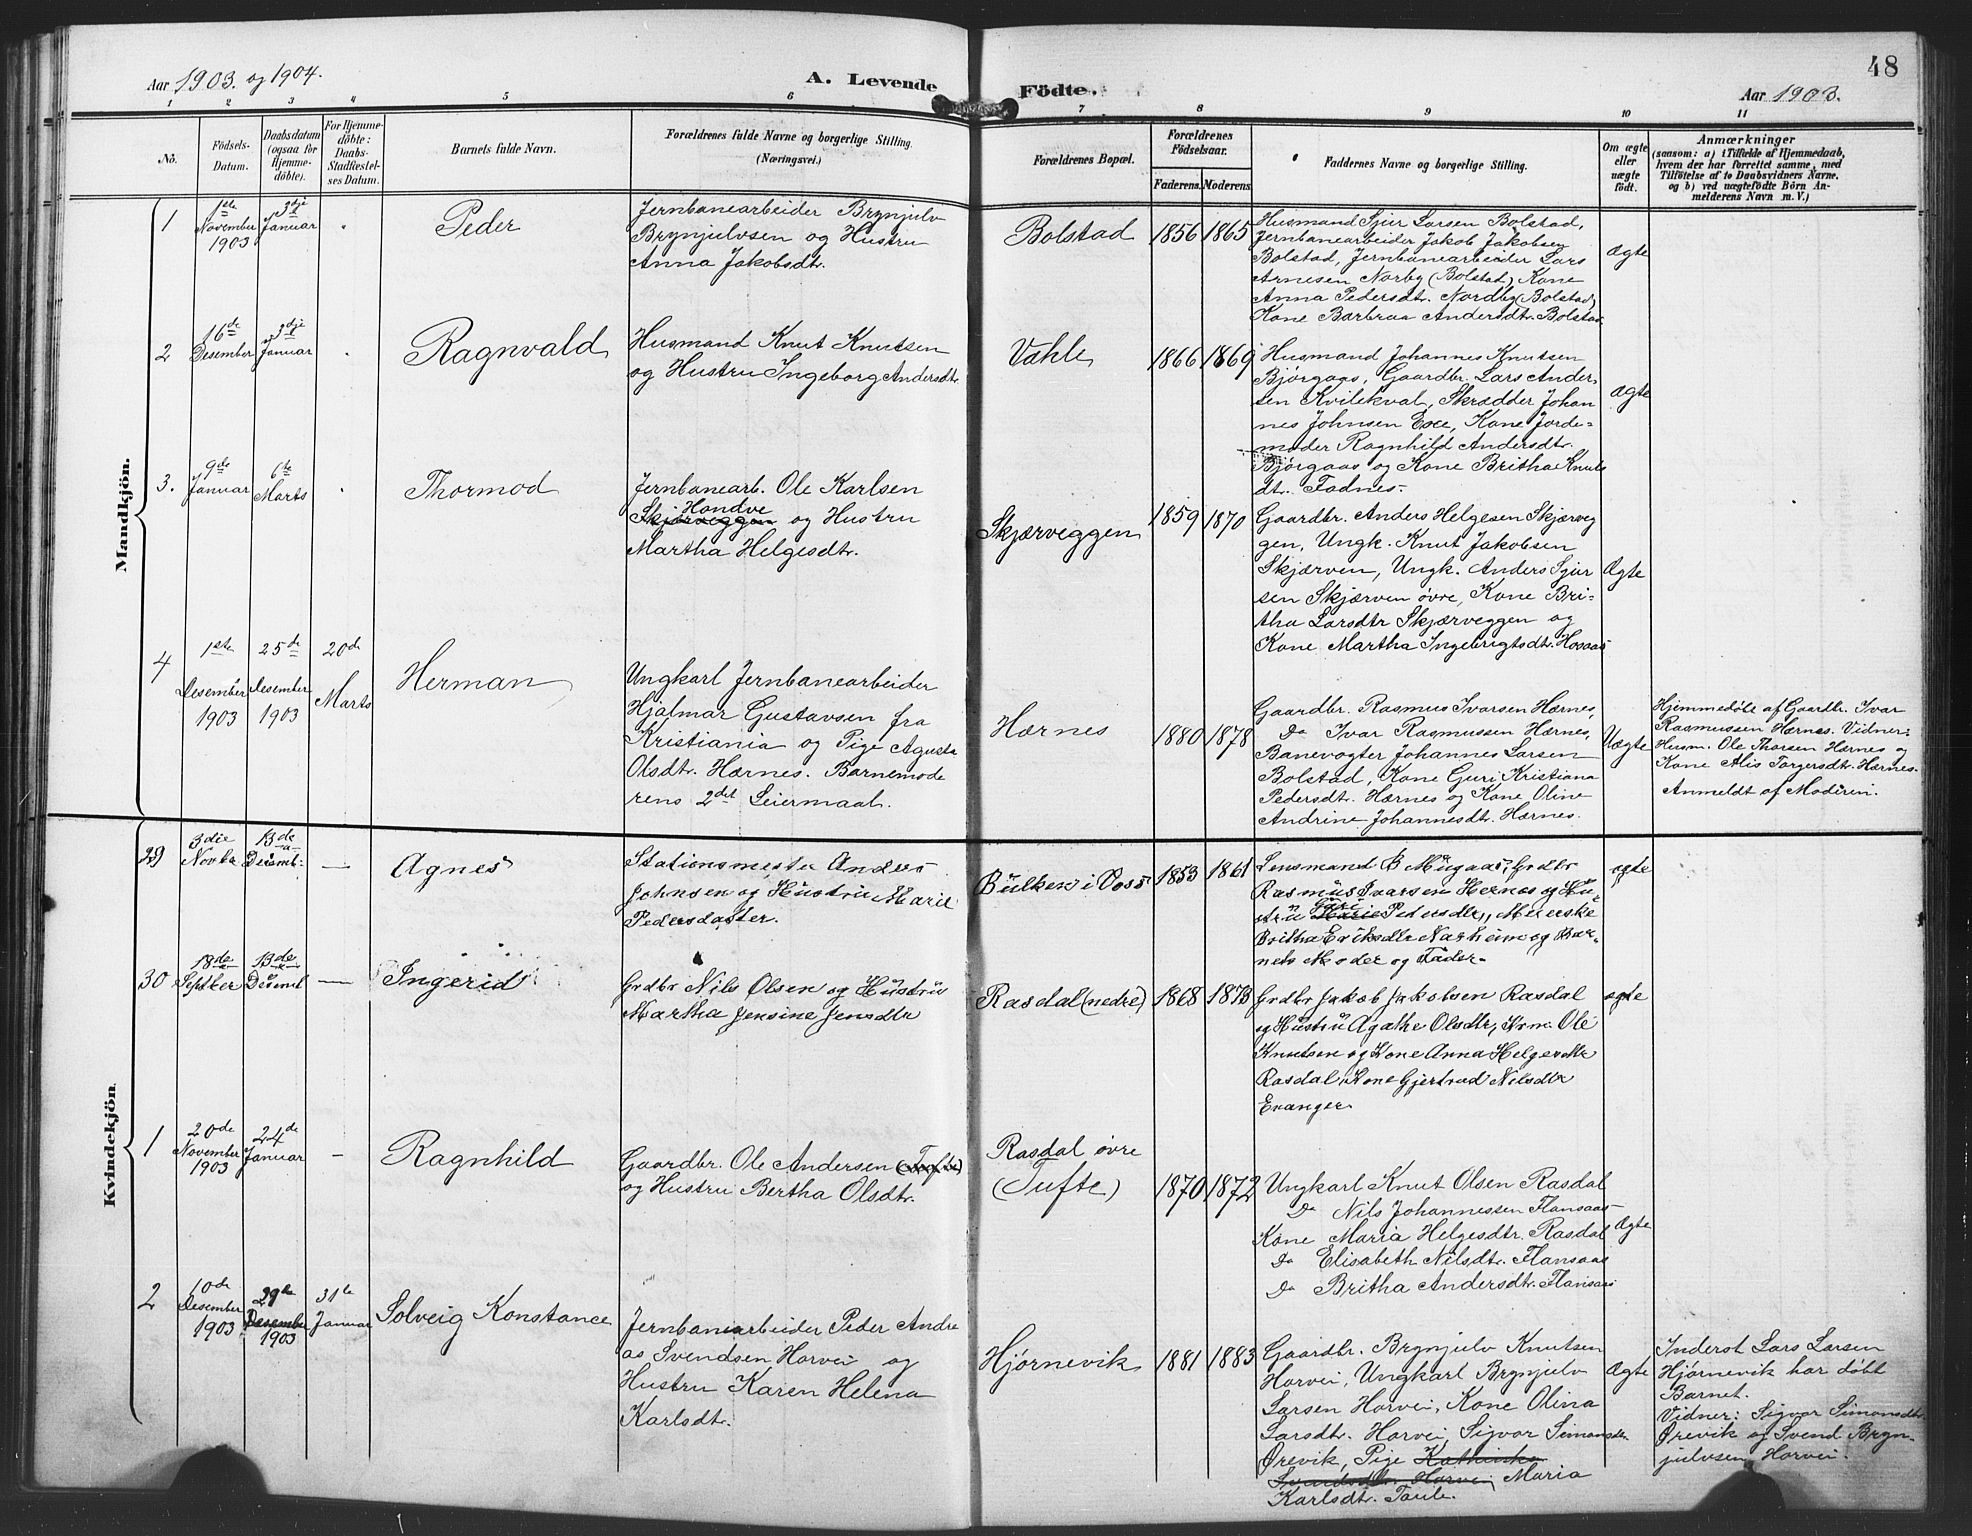 Aar 1903. og 1904.
A. Levende Födte.
48
Aar 1903.
1 2 3 4 5 6 7 8 9 10 11
Nô.
Födsels-Datum.
Daabsdatum (ogsaa for Hjemme-döbte).
For Hjemme-döbte: Daabs-Stadfestel-ses Datum.
Barnets fulde Navn.
Forældrenes fulde Navne og borgerlige Stilling.
(Næringsvei.)
Forældrenes Bopæl.
Forældrenes Födselsaar.
Faderens. Moderens.
Faddernes Navne og borgerlige Stilling.
Om ægte eller uægte födt.
Anmærkninger
(saasom: a) i Tilfælde af Hjemmedaab,
hvem der har forrettet samme, med
Tilföielse af to Daabsvidners Navne.
og b) ved uægtefödte Börn An-
melderens Navn m. V.)
Mandkjön.
1
1ste November 1903
3dje Januar
Peder
Jernbanearbeider Brynjulv
Brynjulvsen og Hustru
Anna Jakobsdtr.
Bolstad
1856 1865
Husmand Sjur Larsen Bolstad,
Jernbanearbeider Jakob Jakobsen
Bolstad, Jernbanearbeider Lars
Arnesen Norby (Bolstad) Kone
Anna Pedersdt. Nordby (Bolstad)
Kone Barbraa Andersdtr. Bolstad
Ægte
2
16de Desember
3dje Januar
Ragnvald
Husmand Knut Knutsen
og Hustru Ingeborg Andersdtr
Vahle
1866 1869
Husmand Johannes Knutsen
Bjørgaas, Gaardbr. Lars Ander-
sen Kvilekval, Skrædder Johan
nes Johnsen Exe, Kone Jorde-
moder Ragnhild Andersdtr.
Bjørgaas og Kone Britha Knuts
dtr. Fadnes.
Ægte
3.
9de Januar
6te Marts
Thormod
Jernbanearb. Ole Karlsen
Handve
Skjærveggen og Hustru
Martha Helgesdtr.
Skjærveggen
1859 1870
Gaardbr. Anders Helgesen Skjærveg
gen, Ungk. Knut Jakobsen
Skjærven, Ungk. Anders Sjur
sen Skjærven øvre, Kone Bri-
tha Larsdtr Skjærveggen og
Kone Martha Ingebrigtsdtr. Hosaas
Ægte
4
1ste Desember 1903
25de Desember 1903
20de Marts
Herman
Ungkarl Jernbanearbeider
Hjalmar Gustavsen fra
Kristiania og Pige Agusta
Olsdtr. Hærnes. Barnemode
rens 2det Leiermaal.
Hærnes
1880 1878
Gaardbr. Rasmus Ivarsen Hærnes,
Do Ivar Rasmussen Hærnes,
Banevogter Johannes Larsen
Bolstad, Kone Guri Kristiana
Pedersdt. Hærnes og Kone Oline
Andrine Johannesdtr. Hærnes.
Uægte
Hjemmedøbt af Gaardbr. Ivar
Rasmussen Hærnes. Vidner:
Husm. Ole Thorsen Hærnes og
Kone Alis Torgersdtr. Hærnes.
Anmeldt af Moderen.
Kvindekjön.
29
3die Novbr
13de Decemb:
Agnes
Stationsmester Anders
Johnsen og Hustru Marie
Pedersdatter.
Bulken i Voss
1853 1861
Lensmand B Mugaas, Grdbr
Rasmus Ivarsen Hernes og Hu
stru Guri Marie Pedersdtr,, Meierske
Britha Eriksdtr Nasheim og Bar-
nets Moder og Fader.
ægte
30
18de Septber
13de Decemb
Ingerid
Grdbr Nils Olsen og Hustru
Martha Jensine Jensdtr
Rasdal (nedre)
1868 1873
Grdbr Jakob Jakobsen Rasdal
og Hustru Agathe Olsdtr, Ole
Knutsen og Kone Anna Helgesdtr
Rasdal, Kone Gjertrud Nilsdtr
Evanger
ægte
1
20de November 1903
24de Januar
Ragnhild
Gaardbr. Ole Andersen (Tufte)
og Hustru Bertha Olsdtr.
Rasdal øvre
(Tufte)
1870 1872
Ungkarl Knut Olsen Rasdal
Do Nils Johannessen Flansaas
Kone Maria Helgesdtr. Rasdal
Do Elisabeth Nilsdtr. Flansaas
Do Britha Andersdtr. Flansaas
Ægte
2
10de Desember 1903
29de Desember 1903
31te Januar
Solveig Konstance
Jernbanearbeider Peder Andre
as Svendsen Horvei og
Hustru Karen Helena
Karlsdtr.
Hjørnevik
1881 1883
Gaardbr. Brynjulv Knutsen
Horvei, Ungkarl Brynjulv
Larsen Horvei, Kone Olina
Larsdtr. Horvei, Sigvor Simonsdtr
Ørevik, Pige Kathinka
Svendsdtr. Horvei, Maria
Karlsdtr. Taule.
Ægte
Inderst Lars Larsen
Hjørnevik har døbt
Barnet.
Vidner: Sigvor Simonsdtr.
Ørevik og Svend Bryn-
julvsen Horvei.